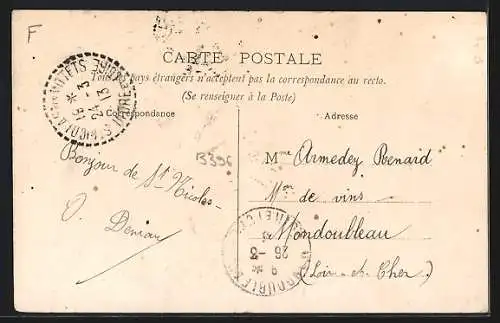 F
CARTE POSTALE
Tous les pays étrangers n'acceptent pas la correspondance au recto.
(Se renseigner à la Poste)
Correspondance
Adresse
Bonjour de St Nicolas
O. Deniau
B396
Mme Armedey Renard
Mon de vins
Mondoubleau
(Loir-et-Cher)
16 *
24 -3
13
26 -3